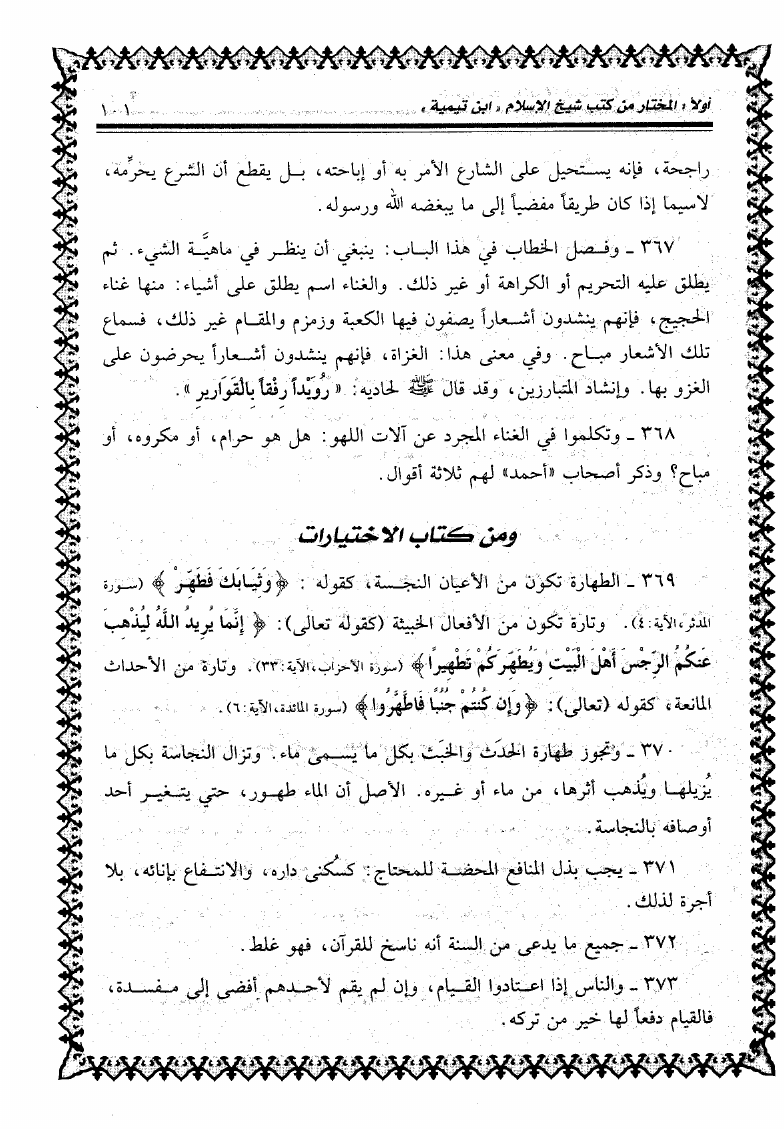 أولاً: المختار من كتب شيخ الإسلام «ابن تيمية» ١٠١
راجحة، فإنه يستحيل على الشارع الأمر به أو إباحته، بل يقطع أن الشرع يحرِّمه،
لاسيما إذا كان طريقاً مفضياً إلى ما يبغضه الله ورسوله.
٣٦٧ ـ وفصل الخطاب في هذا الباب: ينبغي أن ينظر في ماهيَّة الشيء. ثم
يطلق عليه التحريم أو الكراهة أو غير ذلك. والغناء اسم يطلق على أشياء: منها غناء
الحجيج، فإنهم ينشدون أشعاراً يصفون فيها الكعبة وزمزم والمقام غير ذلك، فسماع
تلك الأشعار مباح. وفي معنى هذا: الغزاة، فإنهم ينشدون أشعاراً يحرضون على
الغزو بها. وإنشاد المتبارزين، وقد قال ﷺ لحاديه: «رُوَيْداً رِفْقاً بِالْقَوَارِيرِ».
٣٦٨ ـ وتكلموا في الغناء المجرد عن آلات اللهو: هل هو حرام، أو مكروه، أو
مباح؟ وذكر أصحاب «أحمد» لهم ثلاثة أقوال.
ومن كتاب الاختيارات
٣٦٩ ـ الطهارة تكون من الأعيان النجسة، كقوله : ﴿وَثِيَابَكَ فَطَهِّرْ﴾ (سورة
المدثر، الآية:٤). وتارة تكون من الأفعال الخبيثة (كقوله تعالى): ﴿إِنَّمَا يُرِيدُ اللَّهُ لِيُذْهِبَ
عَنكُمُ الرِّجْسَ أَهْلَ الْبَيْتِ وَيُطَهِّرَكُمْ تَطْهِيرًا﴾ (سورة الأحزاب، الآية:٣٣). وتارة من الأحداث
المانعة، كقوله (تعالى): ﴿وَإِن كُنتُمْ جُنُبًا فَاطَّهَّرُوا﴾ (سورة المائدة، الآية:٦).
٣٧٠ ـ وتجوز طهارة الحدَث والخبَث بكل ما يسمى ماء. وتزال النجاسة بكل ما
يُزيلها ويُذهب أثرها، من ماء أو غيره. الأصل أن الماء طهور، حتي يتغير أحد
أوصافه بالنجاسة.
٣٧١ ـ يجب بذل المنافع المحضة للمحتاج: كسُكنى داره، والانتفاع بإنائه، بلا
أجرة لذلك.
٣٧٢ ـ جميع ما يدعى من السنة أنه ناسخ للقرآن، فهو غلط.
٣٧٣ ـ والناس إذا اعتادوا القيام، وإن لم يقم لأحدهم أفضى إلى مفسدة،
فالقيام دفعاً لها خير من تركه.